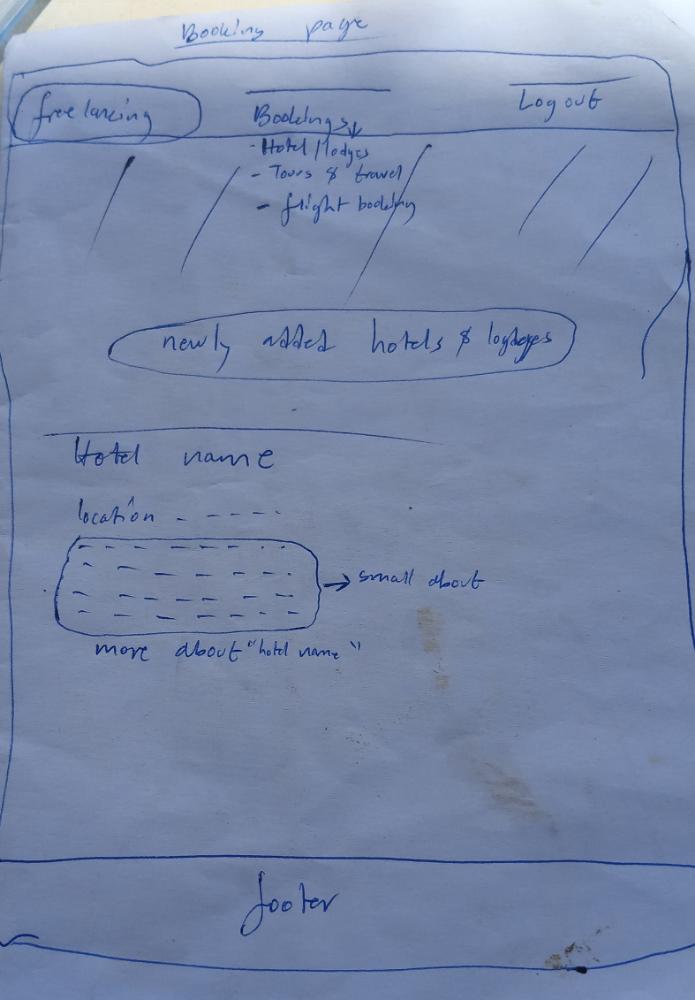 Booking page
freelancing
Bookings
Log out
- Hotel/lodges
- Tours & travel
- flight booking
newly added hotels &
Hotel name
location - - - - -
small about
more about "hotel name"
footer